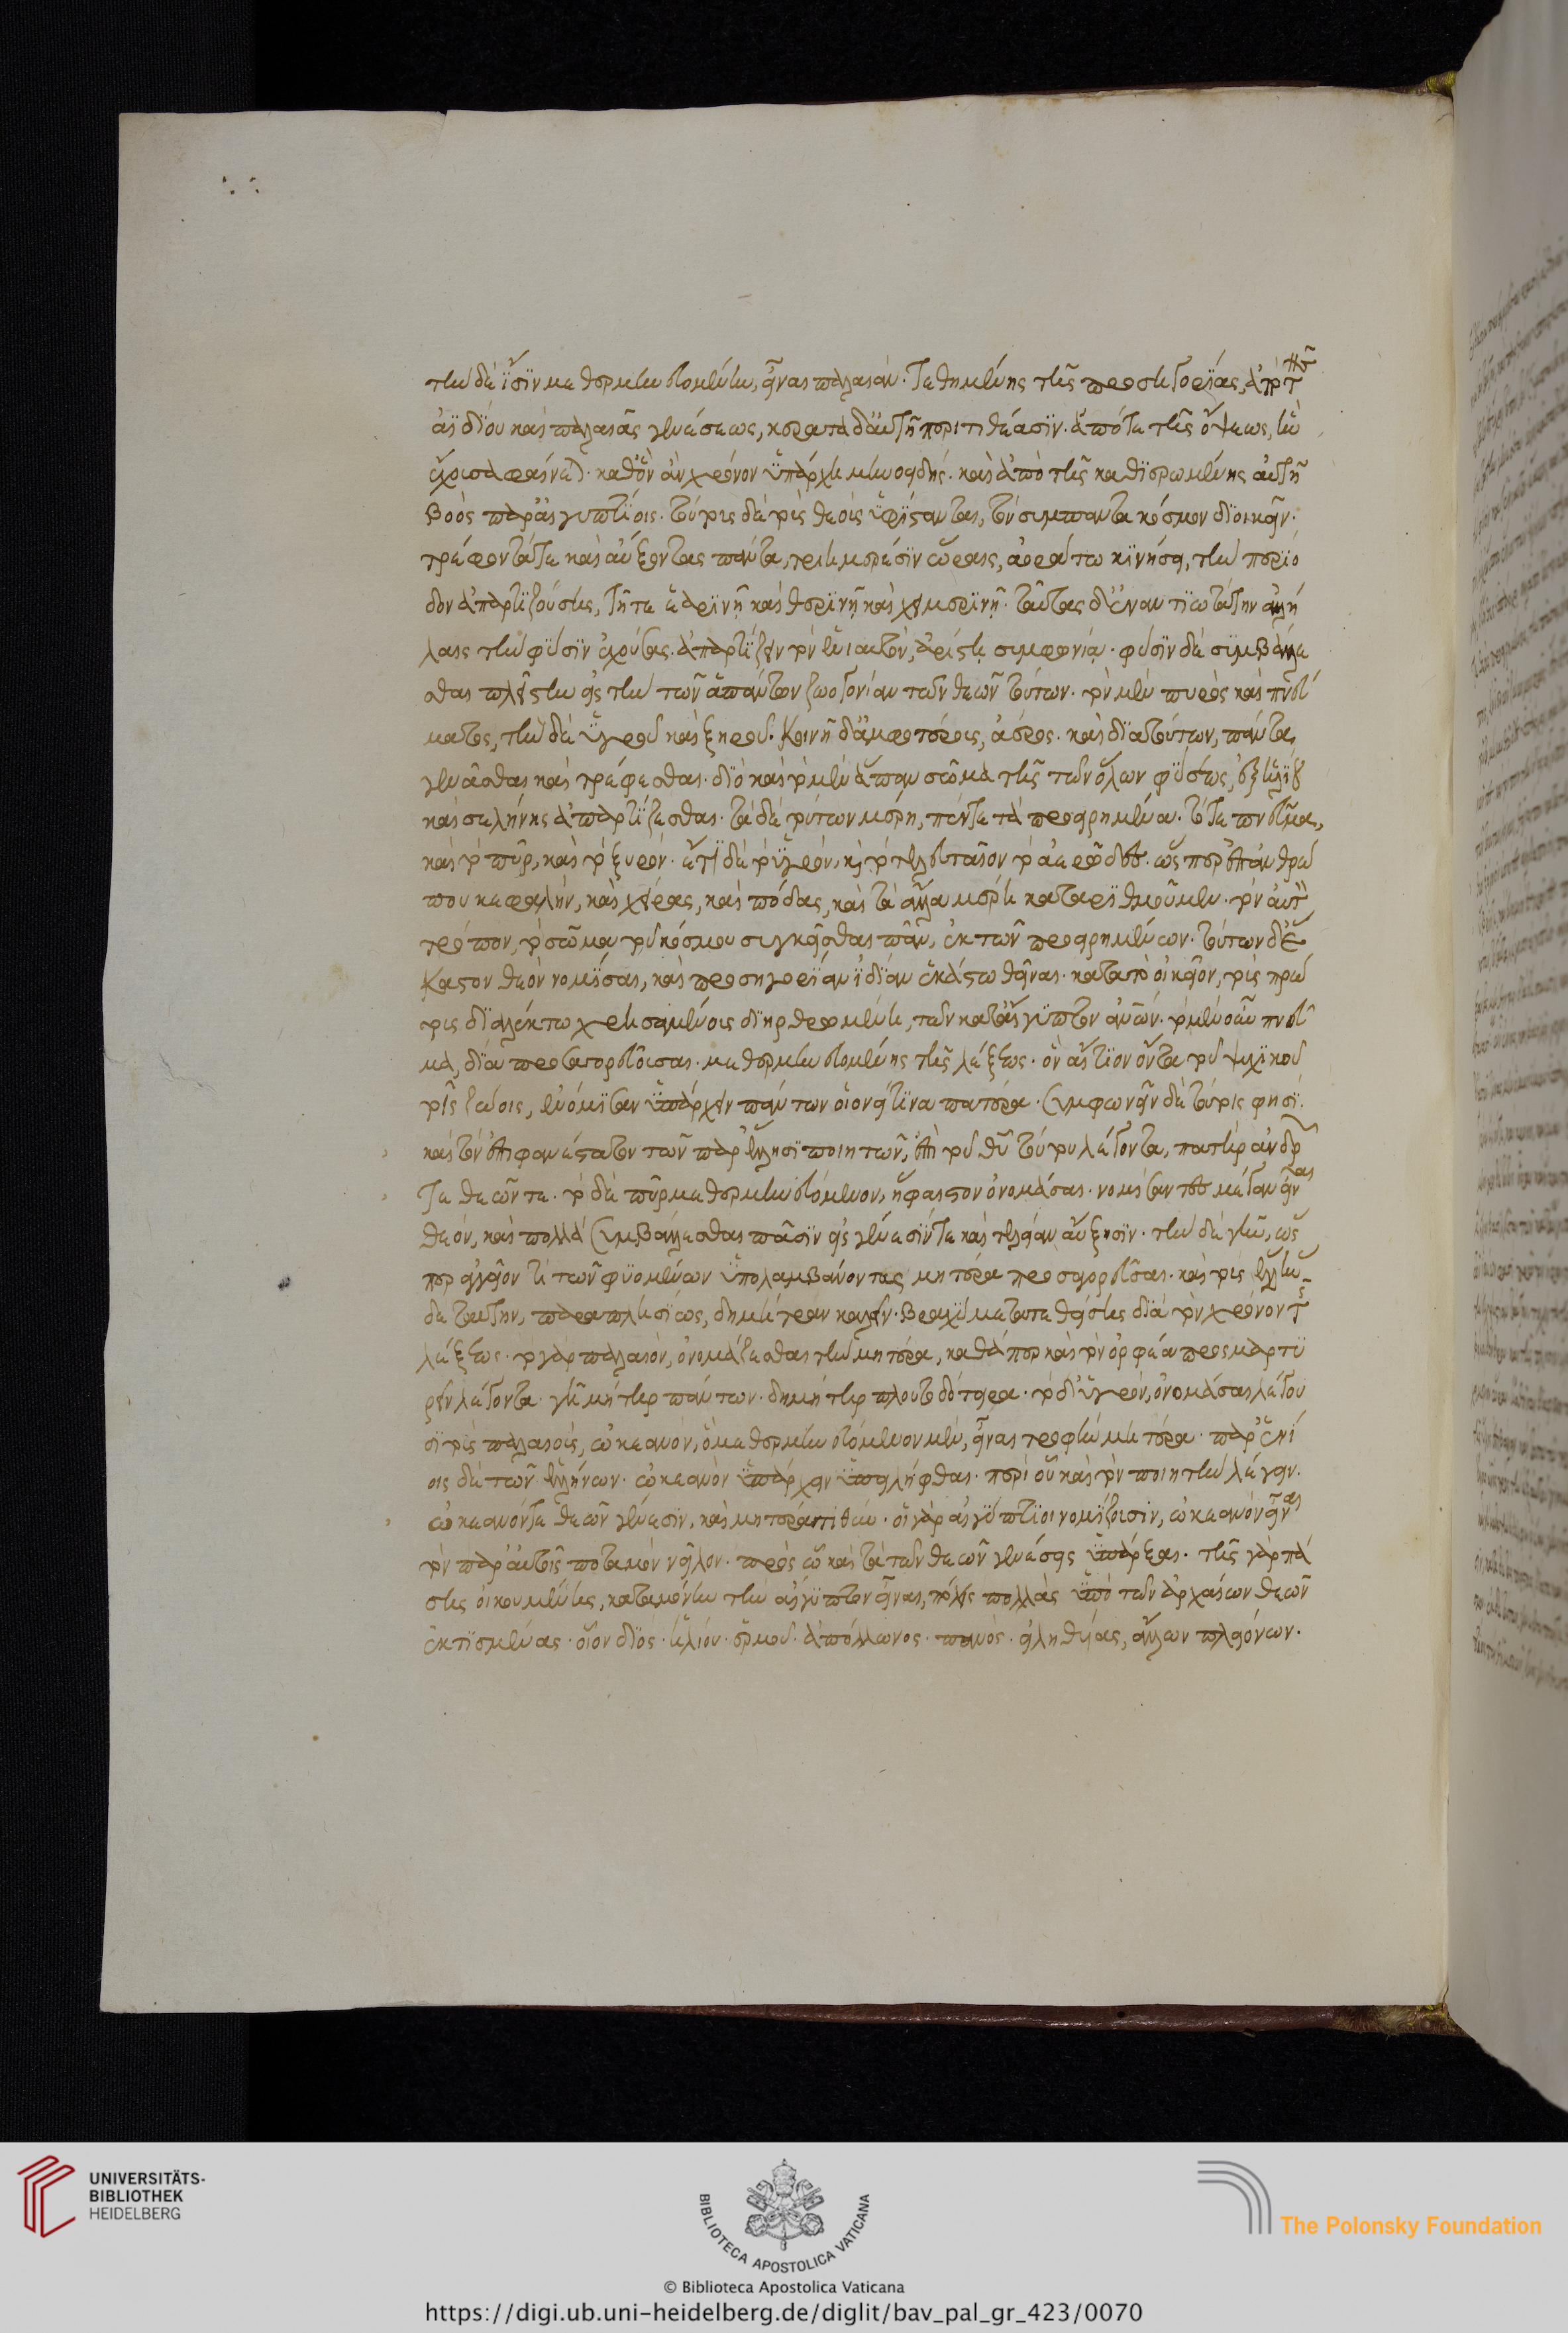 τὴν δὲ ἴσϊν μεθερμηνευομένην, εἶναι παλαιάν. τεθημένης τῆς προσηγορίας, ἀπὸ τῆς
ἀϊδίου καὶ παλαιᾶς γενέσεως, κέρατα δ' αὐτῆ περιτιθέασϊν. ἀπό τε τῆς ὄψεως, ἣν
ἔχουσα φαίνεται. καθ' ὃν ἂν χρόνον ὑπάρχη μηνοειδής. καὶ ἀπὸ τῆς καθϊερωμένης αὐτῆ
βοὸς παρ' αἰγυπτίοις. τούτους δὲ τοὺς θεοὺς ὑφίστανται, τὸν συμπαντα κόσμον διοικεῖν.
τρέφοντάς τε καὶ αὔξοντας πάντα, τριμερέσϊν ὥραις, ἀοράτω κϊνήσει, τὴν περϊό
δον ἀπαρτϊζούσης, τῆ τε ἐαρϊνῇ καὶ θερϊνῇ καὶ χειμερϊνῇ. ταύτας δ' ἐναντϊωτάτην ἀλλή
λαις τὴν φύσϊν ἐχούσας. ἀπαρτίζειν τὸν ἐνιαυτόν, ἀρίστῃ συμφονίᾳ. φύσϊν δὲ συμβάλλε
σθαι πλείστην εἰς τὴν τῶν ἁπάντων ζωογονίαν τῶν θεῶν τούτων. τὸν μὲν πυρὸς καὶ πνεύ
ματος, τὴν δὲ ὑγροῦ καὶ ξηροῦ. κοινῆ δ' ἀμφοτέροις, ἀέρος. καὶ δϊα τούτων, πάντα
γενᾶσθαι καὶ τρέφεσθαι. διὸ καὶ τὸ μὲν ἅπαν σῶμα τῆς τῶν ὅλων φύσεως, ἐξ ἡλίου
καὶ σελήνης ἀπαρτίζεσθαι. τὰ δὲ τούτων μέρη, πέντε τὰ προειρημένα. τό τε πνεῦμα,
καὶ τὸ πῦρ, καὶ τὸ ξυρόν. ἔτϊ δὲ τὸ ὑγρόν, καὶ τὸ τελευταῖον τὸ ἀερῶδες. ὥσπερ ἐπ' ἀνθρώ
που κεφαλήν, καὶ χεῖρας, καὶ πόδας, καὶ τὰ ἄλλα μέρη καταρϊθμοῦμεν. τὸν αὐτὸν
τρόπον, τὸ σῶμα τοῦ κόσμου συγκεῖσθαι πᾶν, ἐκ τῶν προειρημένων. τούτων δ' ἕ
καστον θεὸν νομίσαι, καὶ προσηγορίαν ἰδίαν ἑκάστω θεῖναι. κατὰ τὸ οἰκεῖον, τοῖς πρώ
τοις δϊαλέκτω χρησαμένοις δϊηρθρομένη, τῶν κατ' αἴγϋπτον ἀνῶν. τὸ μὲν οὖν πνεῦ
μα, δία προσαγορεῦσαι. μεθερμηνευομένης τῆς λέξεως. ὃν αἴτϊον ὄντα τοῦ ψυχϊκοῦ
τοῖς ζώοις, ἐνόμϊσαν ὑπάρχειν πάντων οἱονεί τϊνα πατέρα. συμφωνεῖν δὲ τούτοις φησί.
καὶ τὸν ἐπιφανέστατον τῶν παρ' ἕλλησϊ ποιητῶν, ἐπὶ τοῦ θυ τούτου λέγοντα, πατὴρ ἀνδρῶν
τε θεῶν τε. τὸ δὲ πῦρ μεθερμηνευόμενον, ἥφαιστον ὀνομάσαι. νομίσαντες μέγαν εἶναι
θεόν, καὶ πολλὰ συμβάλλεσθαι πᾶσϊν εἰς γένεσίν τε καὶ τελείαν αὔξησϊν. τὴν δὲ γῆν, ὥς
περ ἀγγεῖον τι τῶν φϋομένων ὑπολαμβάνοντας μητέρα προσαγορεῦσαι. καὶ τοὺς ἕλλη
δὲ ταύτην, παραπλησίως, δημήτραν καλεῖν. βραχὺ μετατεθείσης διὰ τὸν χρόνον τῆς
λέξεως. τὸ γὰρ παλαιόν, ὀνομάζεσθαι γῆν μητέρα, καθάπερ καὶ τὸν ὀρφέα προσμαρτϋ
ρεῖν λέγοντα. γῆ μήτηρ πάντων. δημήτηρ πλουτοδότειρα. τὸ δ' ὑγρόν, ὀνομάσαι λέγου
σϊ τοὺς παλαιοὺς, ὠκεανόν, ὃ μεθερμηνευόμενον μὲν, εἶναι τροφὴν μητέρα. παρ' ἐνί
οις δὲ τῶν ἑλλήνων. ὠκεανὸν ὑπάρχειν ὑπειλήφθαι. περὶ οὗ καὶ τὸν ποιητὴν λέγειν.
ὠκεανόν τε θεῶν γένεσϊν, καὶ μητέρα τιθύν. οἱ γὰρ αἰγϋπτϊοι νομίζουσιν, ὠκεανὸν εἶναι
τὸν παρ' αὐτοῖς ποταμὸν νεῖλον. πρὸς ὧ καὶ τὰς τῶν θεῶν γενέσεις ὑπάρξαι. τῆς γὰρ πά
σης οἰκουμένης, κατὰ μόνην τὴν αἴγϋπτον εἶναι, πόλεις πολλὰς ὑπὸ τῶν ἀρχαίων θεῶν
ἐκτϊσμένας. οἷον δϊός. ἡλίου. ἑρμοῦ. ἀπόλλωνος. πανός. εἰληθυίας, ἄλλων πλειόνων.
UNIVERSITÄTS-
BIBLIOTHEK
HEIDELBERG
BIBLIOTECA APOSTOLICA VATICANA
The Polonsky Foundation
© Biblioteca Apostolica Vaticana
https://digi.ub.uni-heidelberg.de/diglit/bav_pal_gr_423/0070